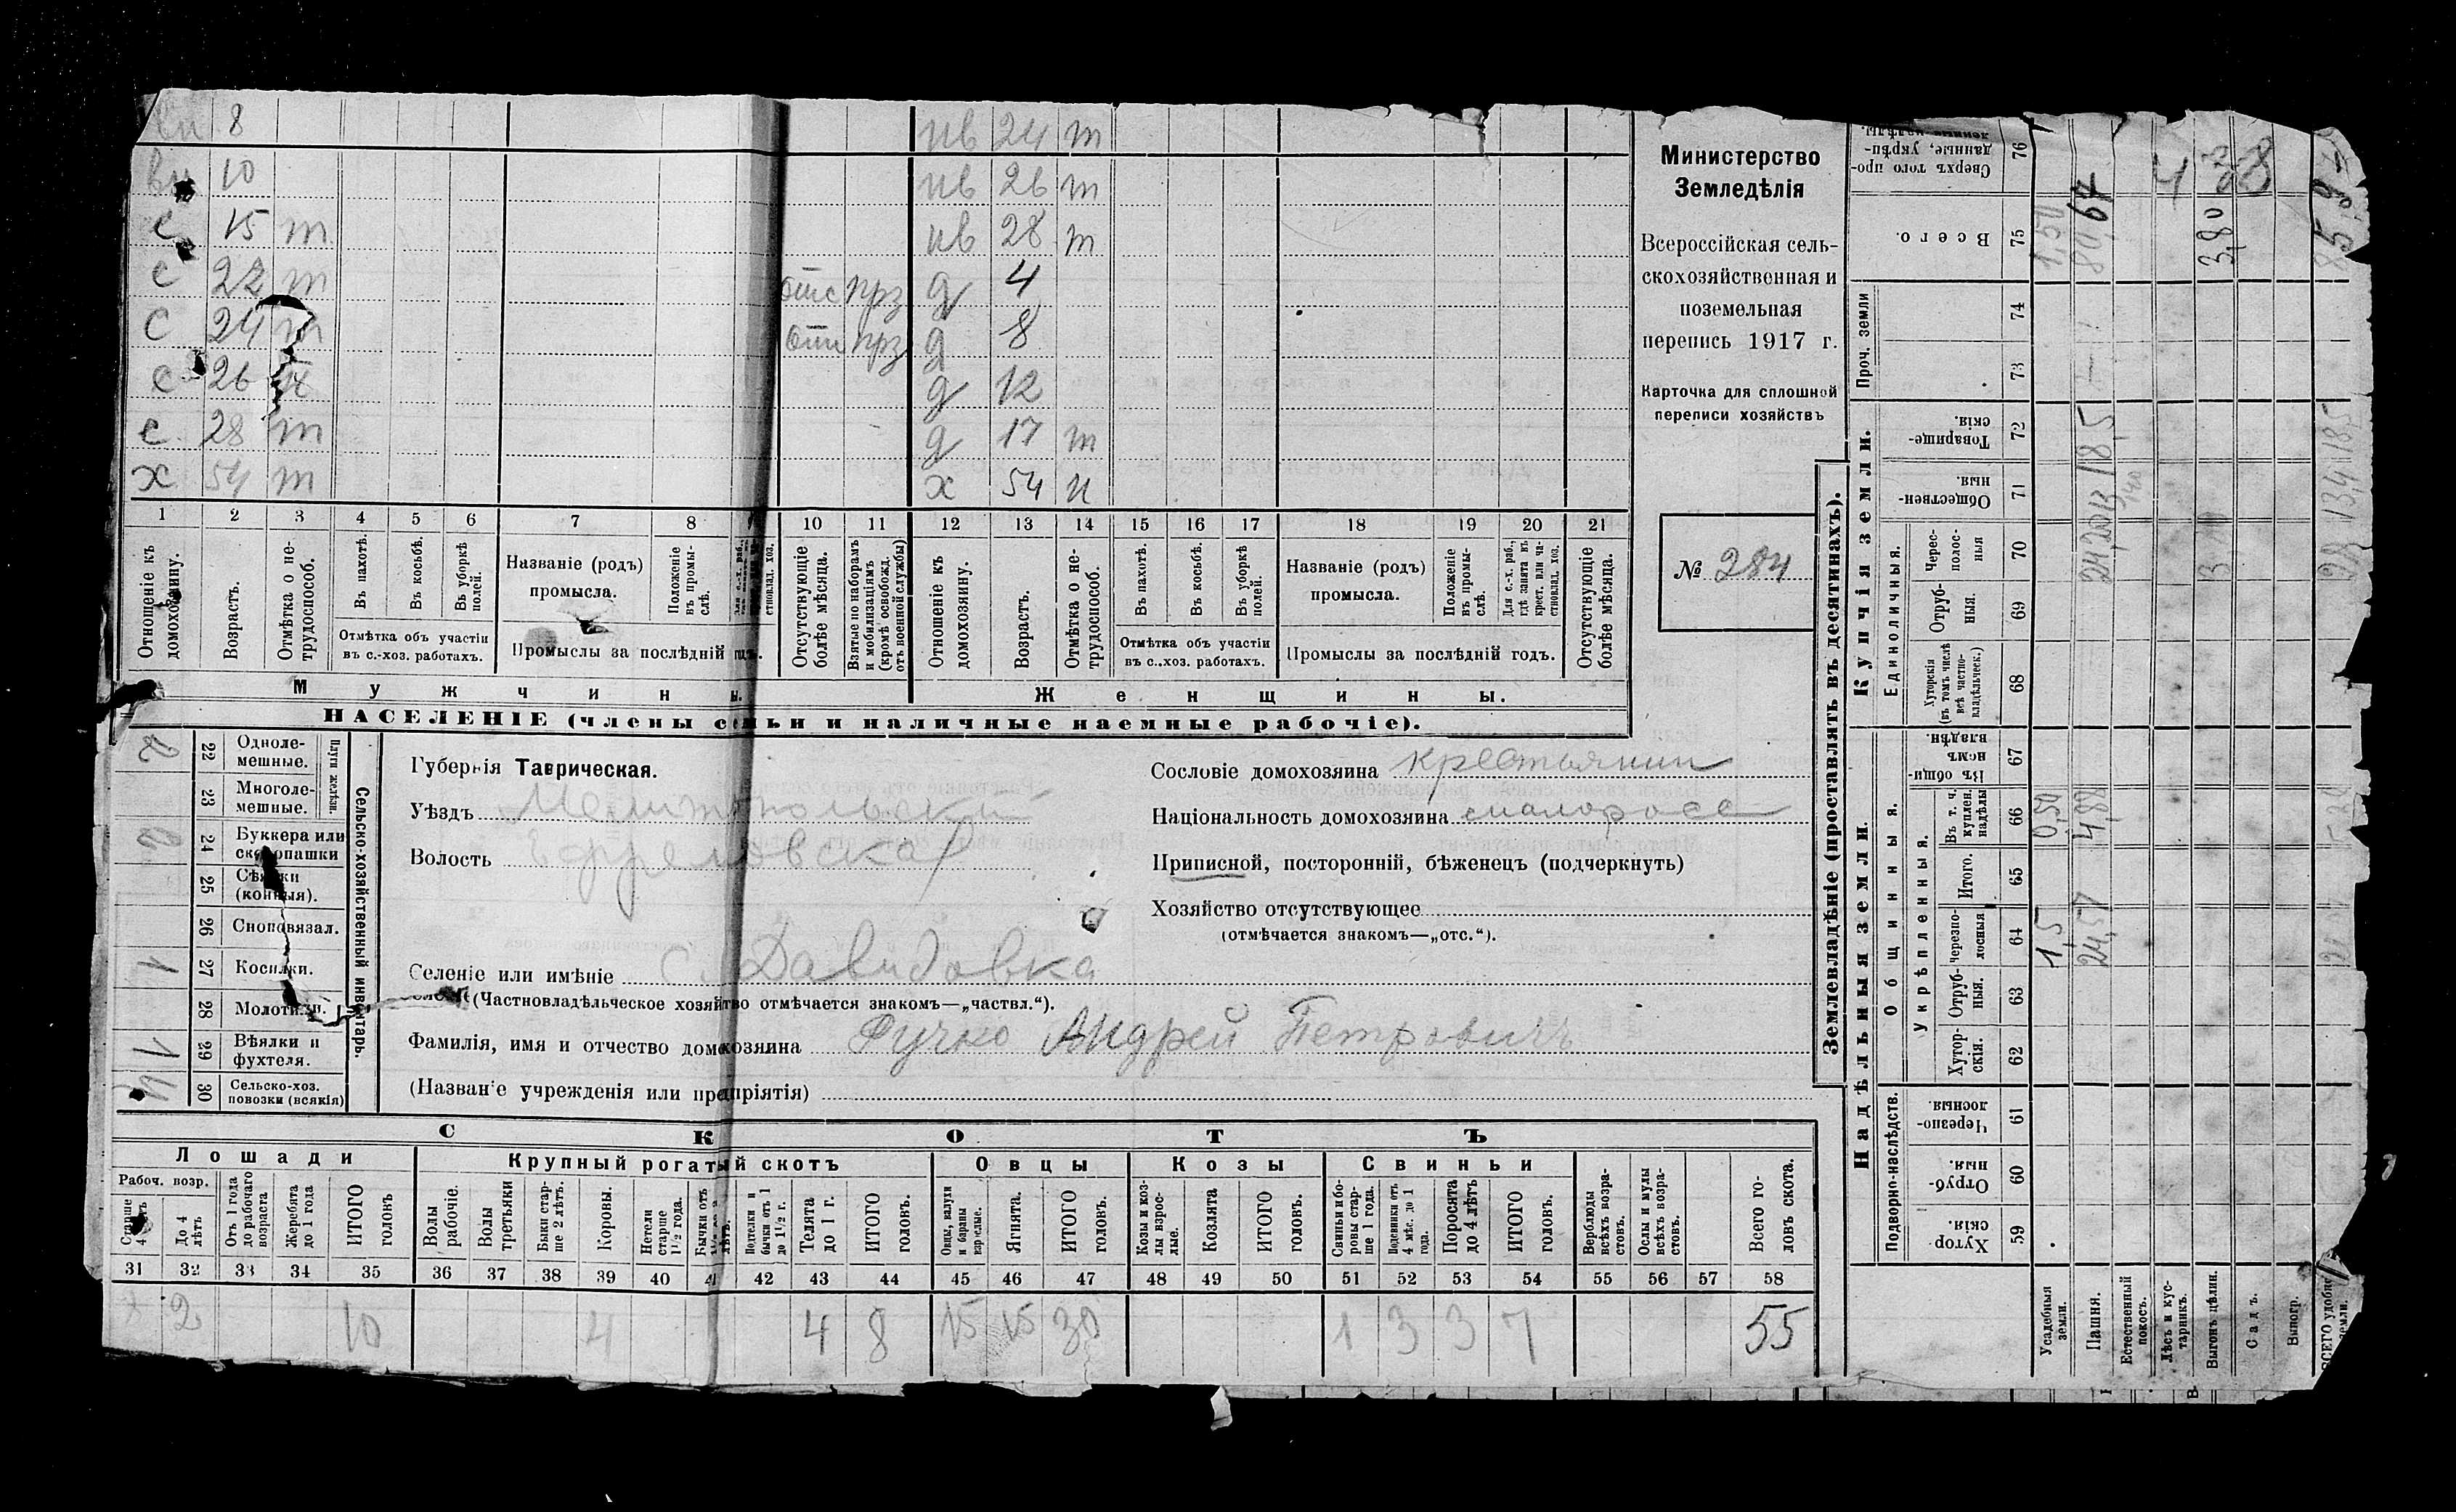 вн 8 нв 24 т
вн 10 нв 26 т
с 15 т нв 28 т
с 22 т отс прз д 4
с 24 т отс прз д 8
с 26 д 12
с 28 т д 17 т
х 54 т х 54 н
1 2 3 4 5 6 7 8 10 11 12 13 14 15 16 17 18 19 20 21
Отношеніе къ домохозяину.
Возрастъ.
Отмѣтка о нетрудоспособ.
Въ пахотѣ.
Въ косьбѣ.
Въ уборкѣ полей.
Отмѣтка объ участіи
въ с.-хоз. работахъ.
Названіе (родъ)
промысла.
Положеніе въ промыслѣ.
Промыслы за послѣдній годъ.
Отсутствующіе болѣе мѣсяца.
Взятые по наборамъ и мобилизаціямъ (кромѣ освобожд. отъ военной службы)
Отношеніе къ домохозяину.
Возрастъ.
Отмѣтка о нетрудоспособ.
Въ пахотѣ.
Въ косьбѣ.
Въ уборкѣ полей.
Отмѣтка объ участіи
въ с.-хоз. работахъ.
Названіе (родъ)
промысла.
Положеніе въ промыслѣ.
Для с.-х. раб., гдѣ занятъ въ крест. или частновлад. хоз.
Промыслы за послѣдній годъ.
Отсутствующіе болѣе мѣсяца.
Мужчины.
Женщины.
НАСЕЛЕНІЕ (члены семьи и наличные наемные рабочіе).
Министерство
Земледѣлія
Всероссійская сель-
скохозяйственная и
поземельная
перепись 1917 г.
Карточка для сплошной
переписи хозяйствъ
№ 284
Сельско-хозяйственный инвентарь.
Плуги желѣзн.
2 22 Одноле-
мешные.
23 Многоле-
мешные.
2 24 Буккера или
скоропашки
25 Сѣялки
(конныя).
26 Сноповязал.
1 27 Косилки.
28 Молотилки.
1 29 Вѣялки и
фухтеля.
30 Сельско-хоз.
повозки (всякія)
Губернія Таврическая.
Уѣздъ Мелитопольскій
Волость Ефремовская
Селеніе или имѣніе с. Давидовка
(Частновладѣльческое хозяйство отмѣчается знакомъ—„частвл.“).
Фамилія, имя и отчество домохозяина Фучко Андрей Петровичъ
(Названіе учрежденія или предпріятія)
Сословіе домохозяина крестьянин
Національность домохозяина малоросс
Приписной, посторонній, бѣженецъ (подчеркнуть)
Хозяйство отсутствующее
(отмѣчается знакомъ—„отс.“).
СКОТЪ
Лошади Крупный рогатый скотъ Овцы Козы Свиньи
Рабоч. возр.
До 4 лѣтъ
Отъ 1 года до рабочаго возраста
Жеребята до 1 года
ИТОГО головъ
Волы рабочіе.
Волы третьяки
Быки старше 2 лѣтъ.
Коровы.
Нетели старше 1½ года.
Подтелки и бычки отъ 1 до 1½ г.
Телята до 1 г.
ИТОГО головъ.
Овцы, валухи и бараны взрослые.
Ягнята.
ИТОГО головъ.
Козы и козлы взрослые.
Козлята
ИТОГО головъ.
Свиньи и боровы старше 1 года.
Подсвинки отъ 4 мѣс. до 1 года.
Поросята до 4 лѣтъ
ИТОГО головъ.
Верблюды всѣхъ возрастовъ.
Ослы и мулы всѣхъ возрастовъ.
Всего головъ скота.
31 32 33 34 35 36 37 38 39 40 41 42 43 44 45 46 47 48 49 50 51 52 53 54 55 56 57 58
2 10 4 4 8 15 15 30 1 3 3 7 55
Землевладѣніе (проставлять въ десятинахъ).
Надѣльныя земли.
Купчія земли.
Подворно-наслѣдств.
Общинныя.
Укрѣпленныя.
Единоличныя.
Проч. земли
Хуторскія. 59
Отрубныя. 60
Черезполосныя. 61
Хуторскія. 62
Отрубныя. 63
Черезполосныя 64
Итого. 65
Въ т. ч. куплен. надѣлы 66
Въ общинномъ владѣн. 67
Хуторскія (въ томъ числѣ всѣ частновладѣльческ.) 68
Отрубныя. 69
Чересполосныя 70
Общественныя. 71
Товарищескія. 72
73
74
Всего. 75
76
Усадебныя земли. 1,5 0,50 1,50
Пашня. 24,57 4,88 18,5 80,67
Естественный покосъ.
Лѣсъ и кустарникъ. 4
Выгонъ цѣлин. 3 3,80
Садъ. 8
Виногр.
ВСЕГО удобной земли. 13,4 18,5